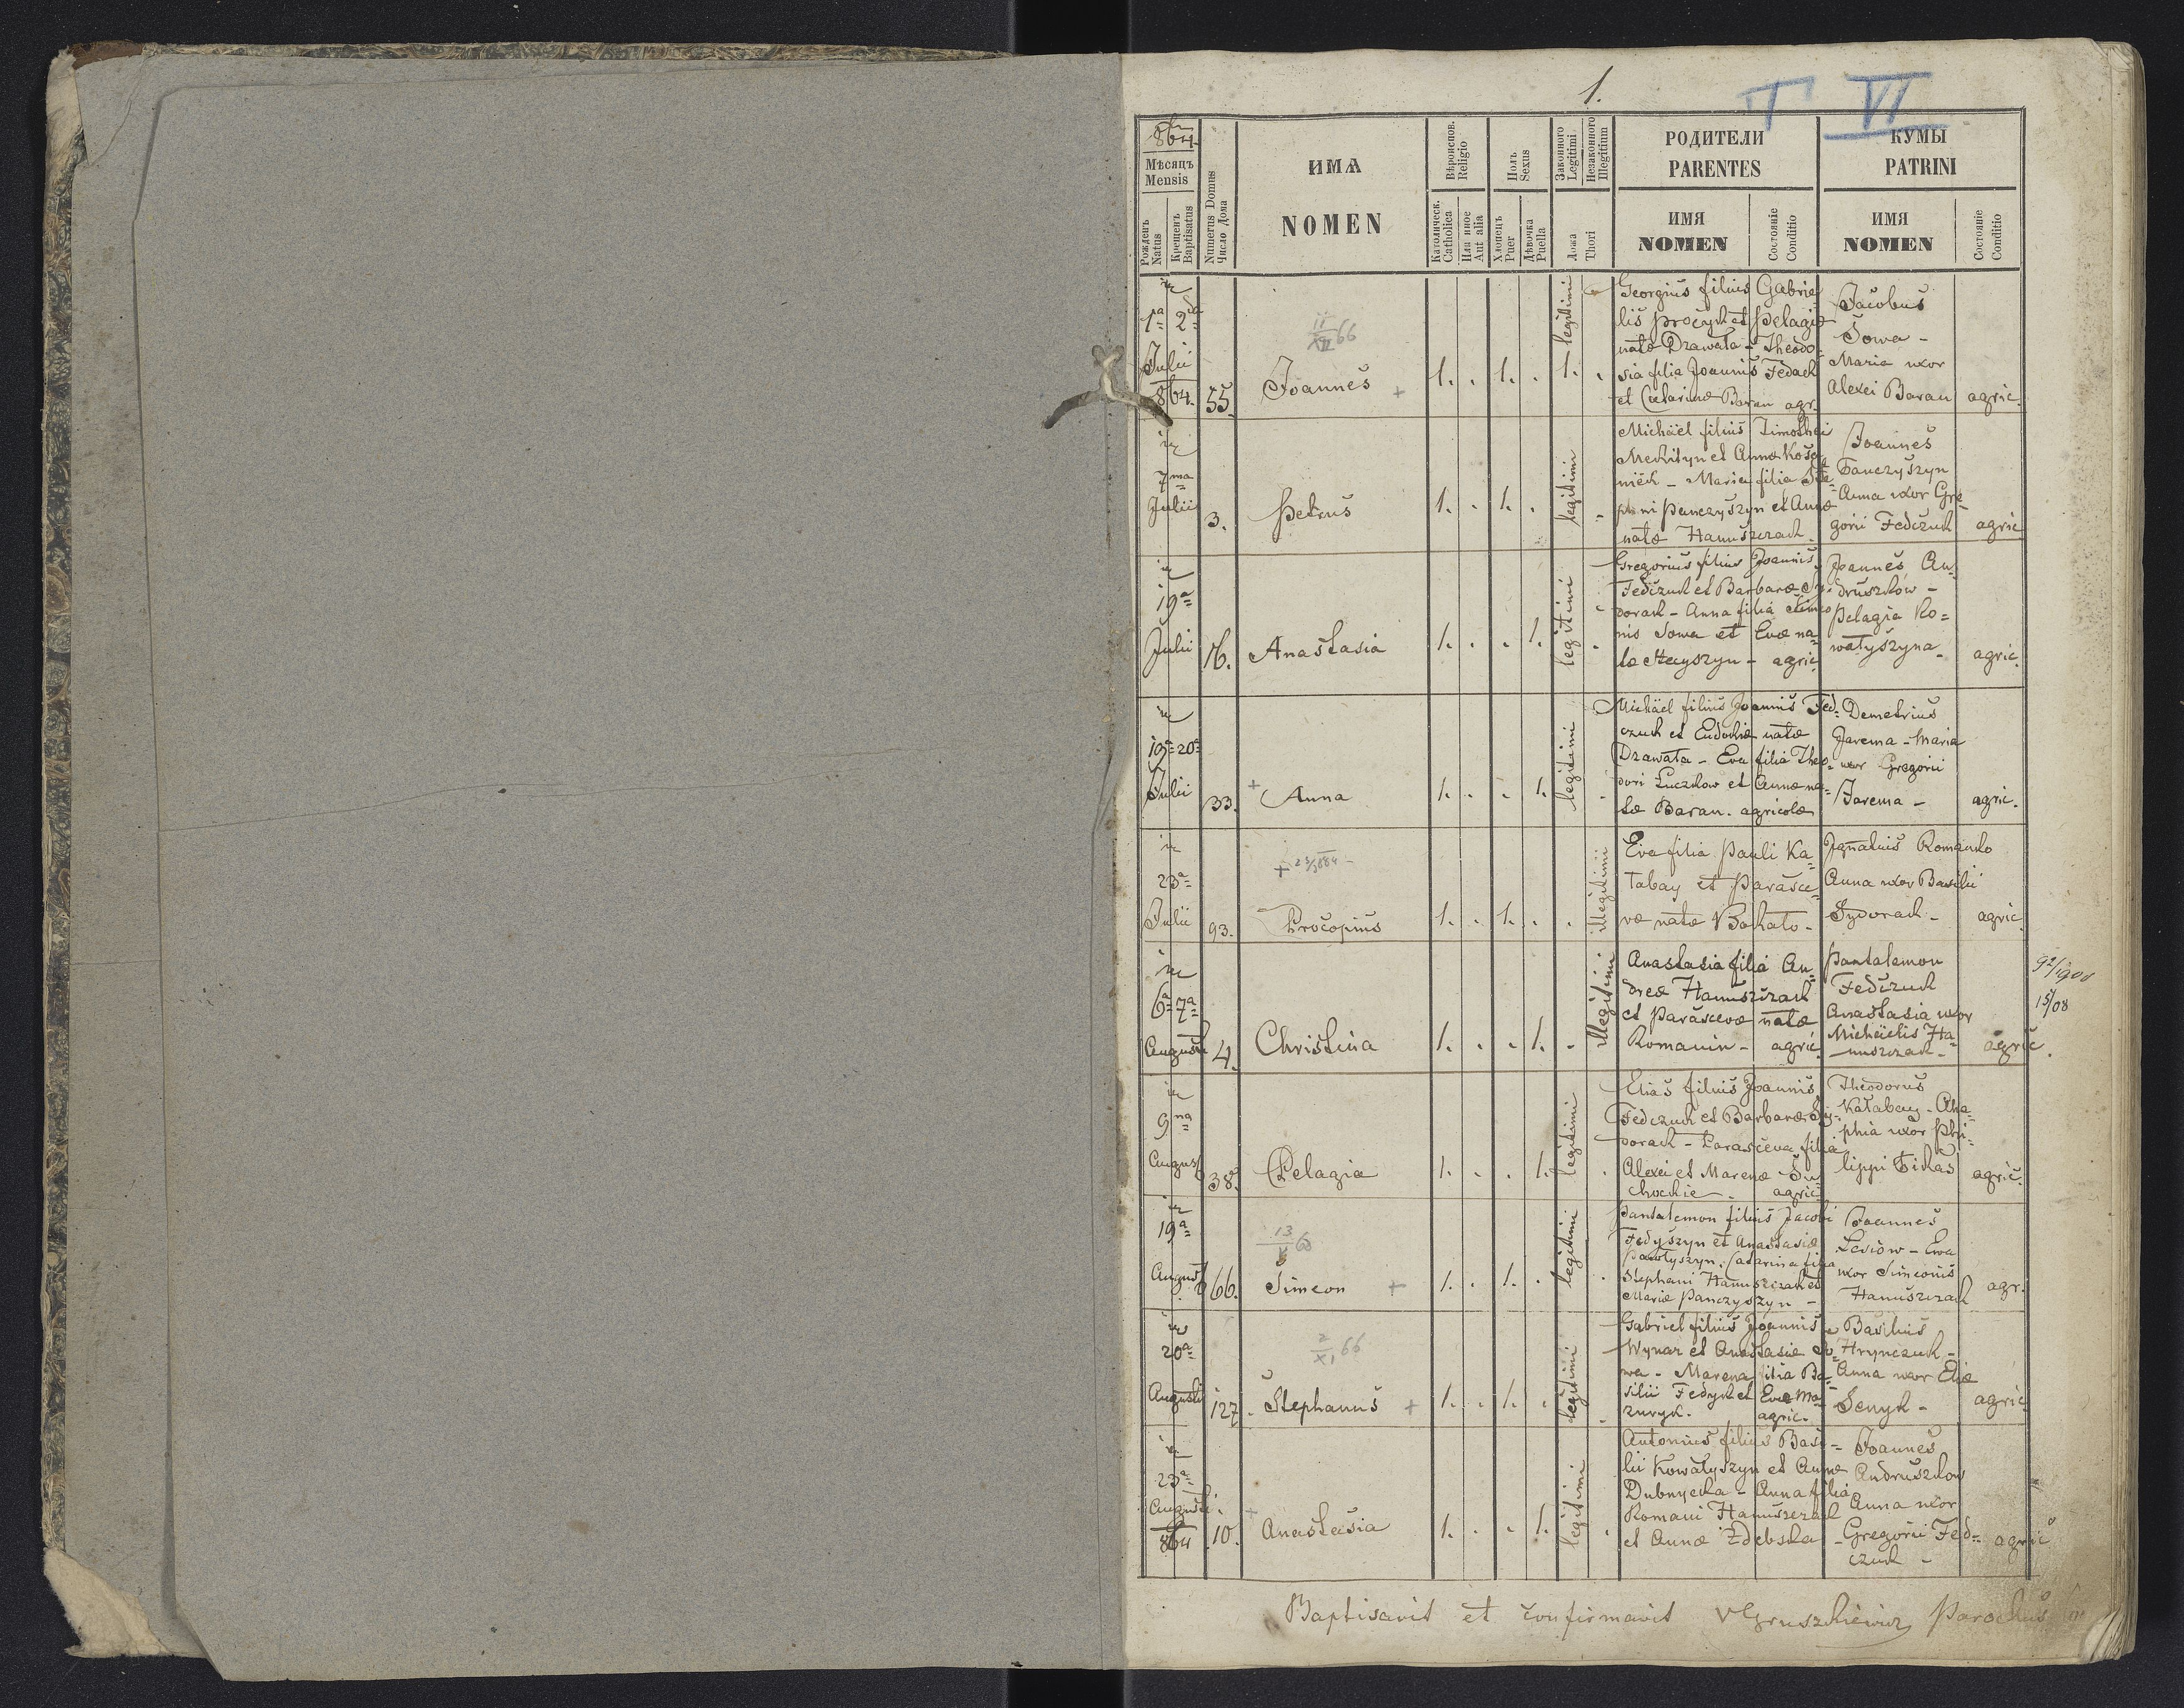 1.
VI
864.
Мѣсяцъ
Mensis
Рожденъ
Natus
Крещенъ
Baptisatus
Numerus Domus
Число Дома
ИМЯ
NOMEN
Вѣроиспов.
Religio
Католическ.
Catholica
Или иное
Aut alia
Полъ
Sexus
Хлопецъ
Puer
Дѣвочка
Puella
Законного
Legitimi
Незаконного
Illegitimi
Ложа
Thori
РОДИТЕЛИ
PARENTES
ИМЯ
NOMEN
Состояніе
Conditio
КУМЫ
PATRINI
ИМЯ
NOMEN
Состояніе
Conditio
1a 2da
Julii
864.
55.
Joannes +
1. . 1. . 1. .
legitimi
Georgius filius Gabrie
lis Procyk et Pelagiæ
natæ Drawata - Theodo-
sia filia Joannis Fedak
et Catarinæ Baran agr.
Jacobus
Sowa -
Maria uxor
Alexei Baran
agric.
7ma
Julii
3.
Petrus
1. . 1. .
legitimi
Michäel filius Timothei
niëck - Maria filia Ste-
phani Panczyszyn et Annæ
natæ Hanuszczack.
Joannes
Panczyszyn
Anna uxor Gre
gorii Fedczuk
agric
19a
Julii
16.
Anastasia
1. . . 1.
legitimi
Gregorius filius Joannis
Fedczuk et Barbaræ Sy-
dorack - Anna filia Simeo
nis Sowa et Evæ na-
agric.
Joannes An-
druszków -
Pelagia Ko-
watyszyna -
agric.
19a 20a
Julii
33.
+ Anna
1. . . 1.
legitimi
Michäel filius Joannis Fed-
czuk et Eudokiæ natæ
Drawata - Eva filia Theo-
dori Luczkow et Annæ na-
tæ Baran. agricolæ
Demetrius
Jarema - Maria
uxor Gregorii
Jarema -
agric.
23a
Julii
93.
Procopius
1. . 1. . .
illegitimi
Eva filia Pauli Ka-
tabay et Parasce-
væ natæ Bohato -
Ignatius Romanko
Anna uxor Basilii
Sydorack -
agric.
6a 7a
Augusti
4.
Christina
1. . . 1. .
illegitimi
Anastasia filia An-
dreæ Hanuszczack
et Parascevæ natæ
Romanin - agric.
Pantalemon
Fedczuk
Anastasia uxor
Michäelis Ha-
nuszczack -
agric.
15/08
9na
August
38.
Pelagia
1. . . 1.
legitimi
Elias filius Joannis
Fedczuk et Barbaræ Sy-
dorack - Parasceva filia
Alexei et Marenæ Su-
agric.
Theodorus
Katabay - Aha-
phia uxor Phi-
lippi Fikas
agric.
19a
August
66.
Simeon +
1. . 1. .
legitimi
Pantalemon filius Jacobi
Fedyszyn et Anastasiæ
Pawtyszyn. Catarina filia
Stephani Hanuszczack et
Mariæ Panczyszyn -
Joannes
Lesiow - Ewa
uxor Simeonis
Hanuszczack
agr.
20a
Augusti
127.
XI 66
Stephanus +
1. . 1. .
legitimi
Gabriel filius Joannis
Wynar et Anastasiæ So-
wa - Marena filia Ba-
silii Fedyk et Evæ Ma-
zuryk. agric.
Basilius
Hrynczuk -
Anna uxor Eliæ
Senyk -
agric.
23a
Augusti
864
10.
Anastasia
1. . . 1.
legitimi
Antonius filius Basi-
lii Kowatyszyn et Annæ
Dubnycka - Anna filia
Romani Hanuszczack
et Annæ Zdebska
Joannes
Andruszkow
Anna uxor
Gregorii Fed-
czuk -
agric
Baptisavit et confirmavit V Gruszkiewicz Parochus